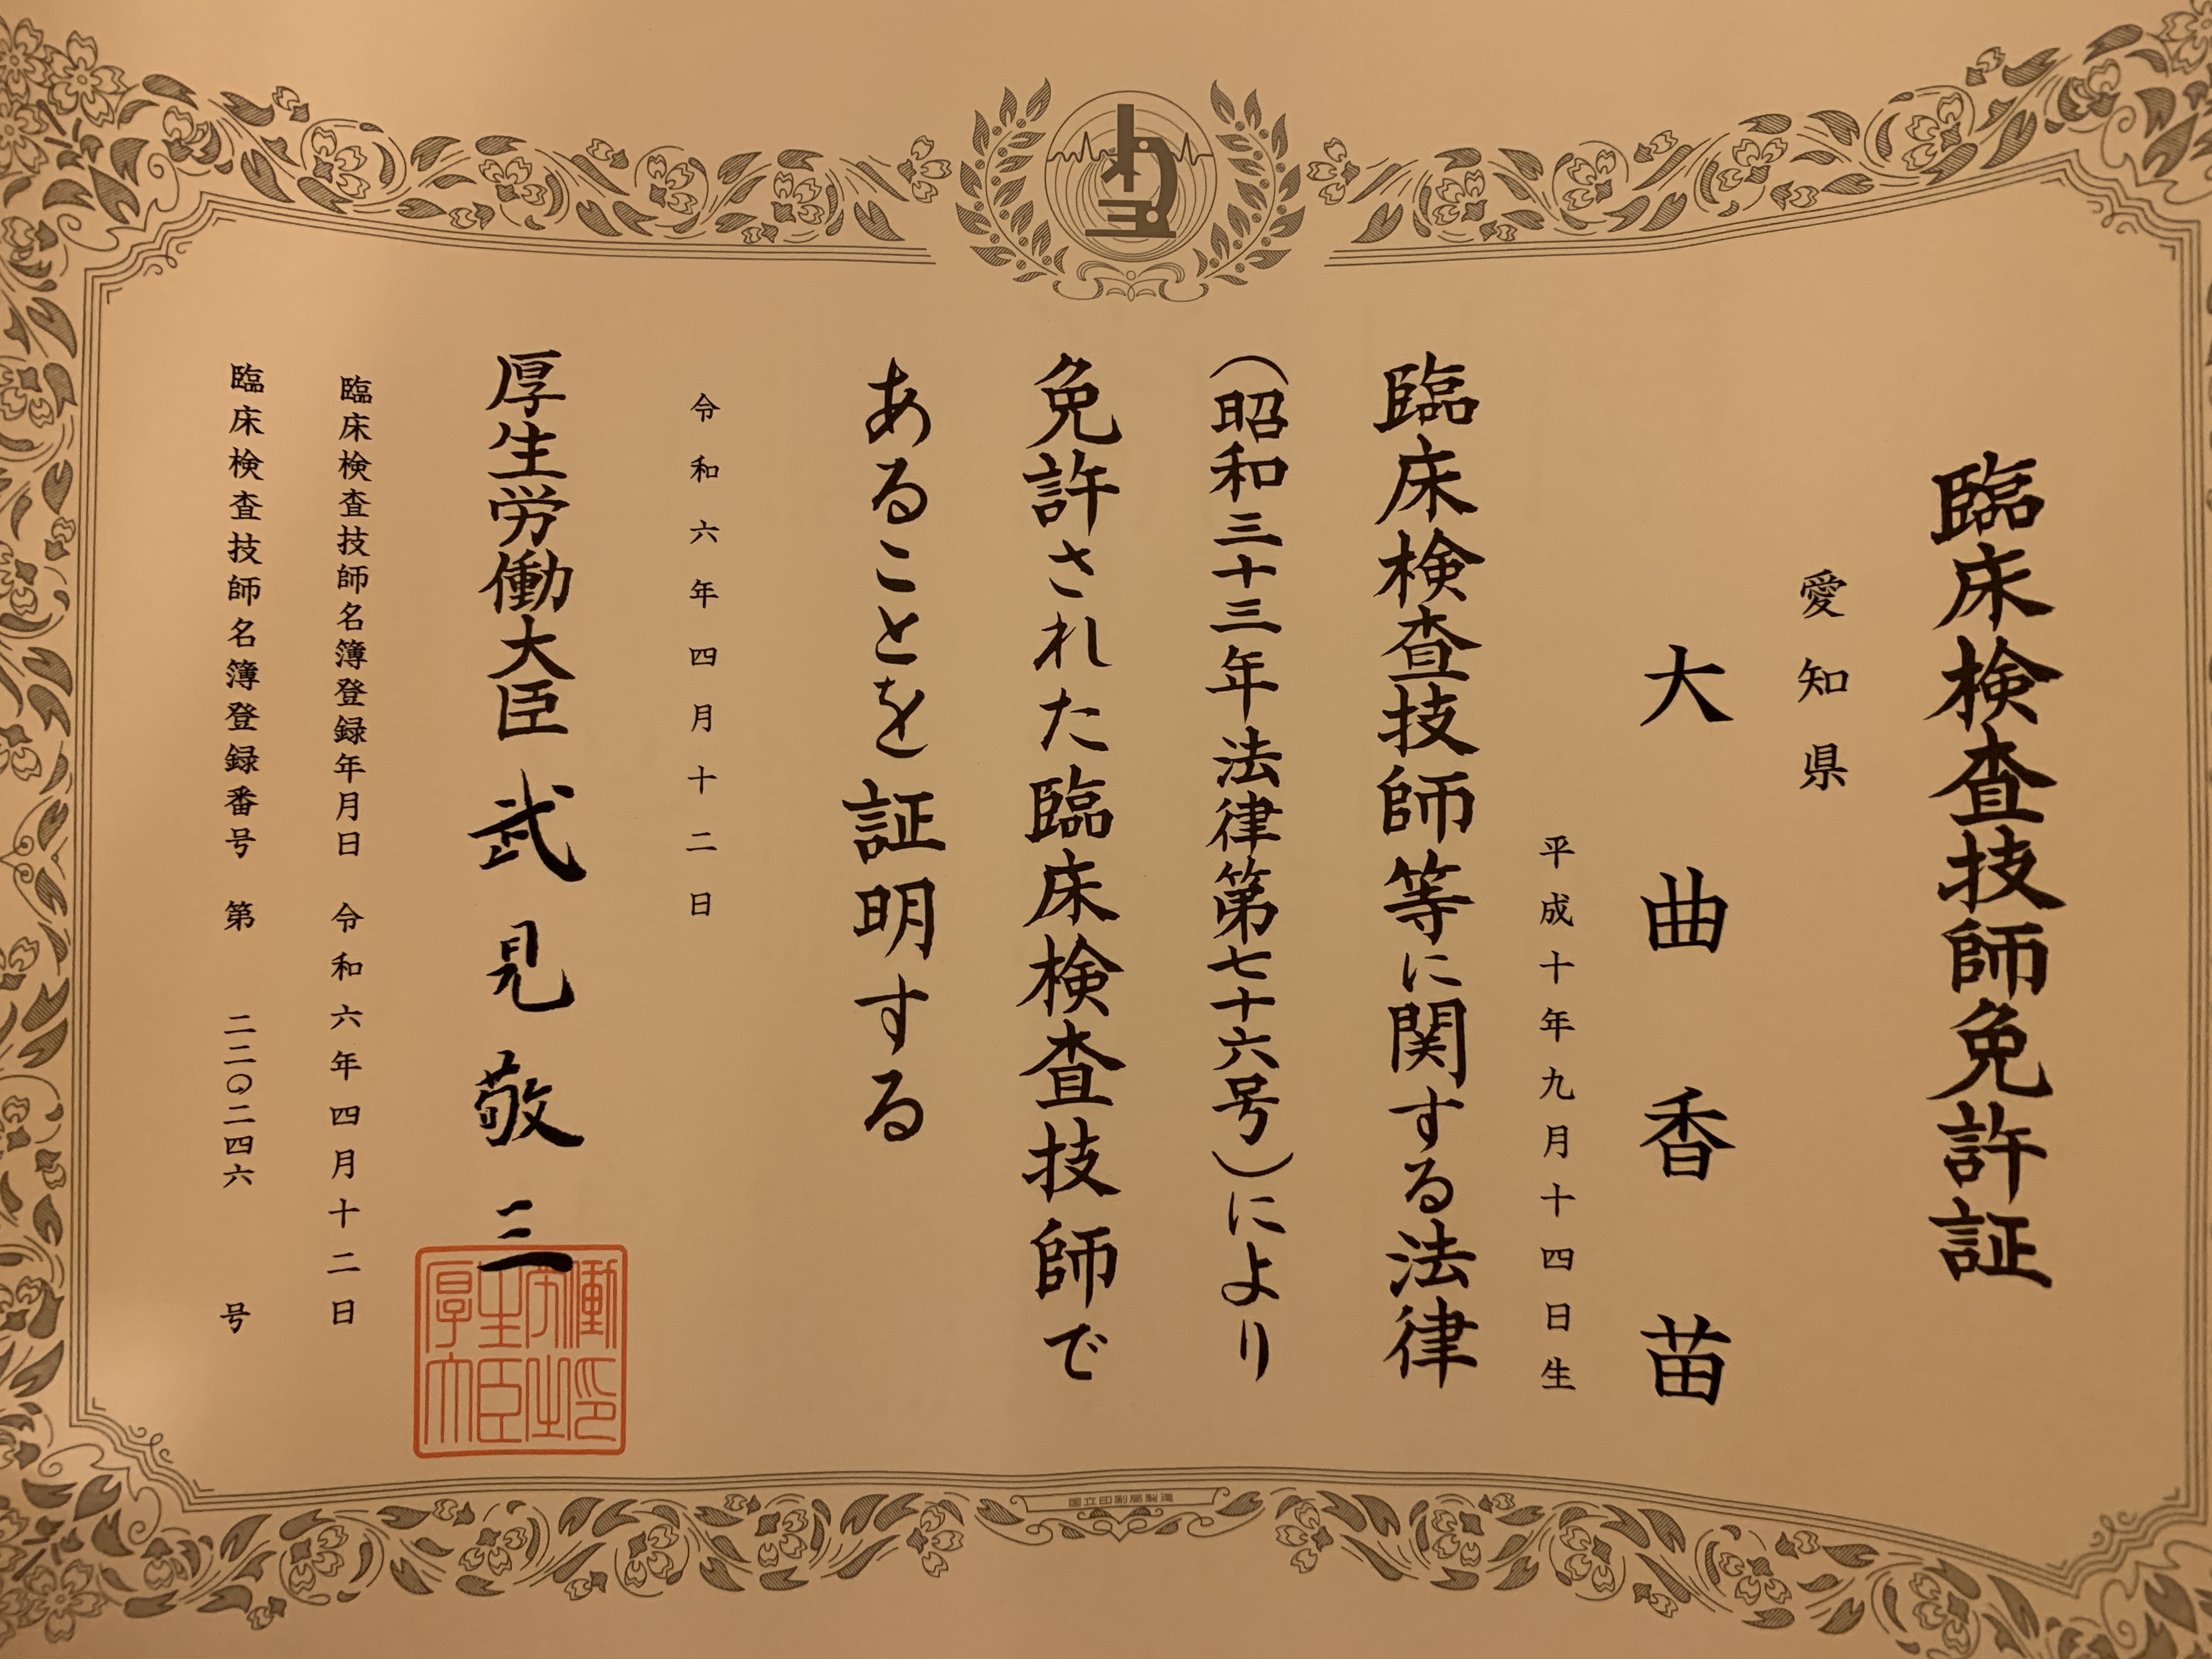 臨床検査技師免許証
愛知県
大曲香苗
平成十年九月十四日生
臨床検査技師等に関する法律
（昭和三十三年法律第七十六号）により
免許された臨床検査技師で
あることを証明する
令和六年四月十二日
厚生労働大臣 武見敬三
臨床検査技師名簿登録年月日 令和六年四月十二日
臨床検査技師名簿登録番号 第 二二〇二四六 号
国立印刷局製造